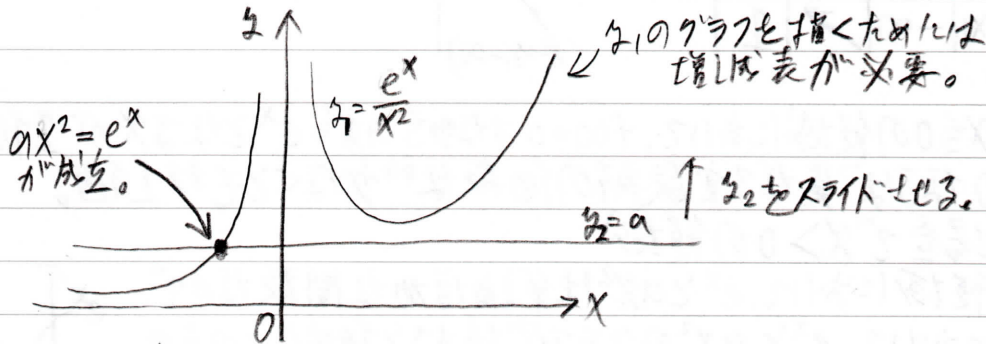 y
y₁のグラフを描くためには
増減表が必要。
y₁=e^x/x²
ax²=e^x
が成立。
y₂をスライドさせる。
y₂=a
x
0